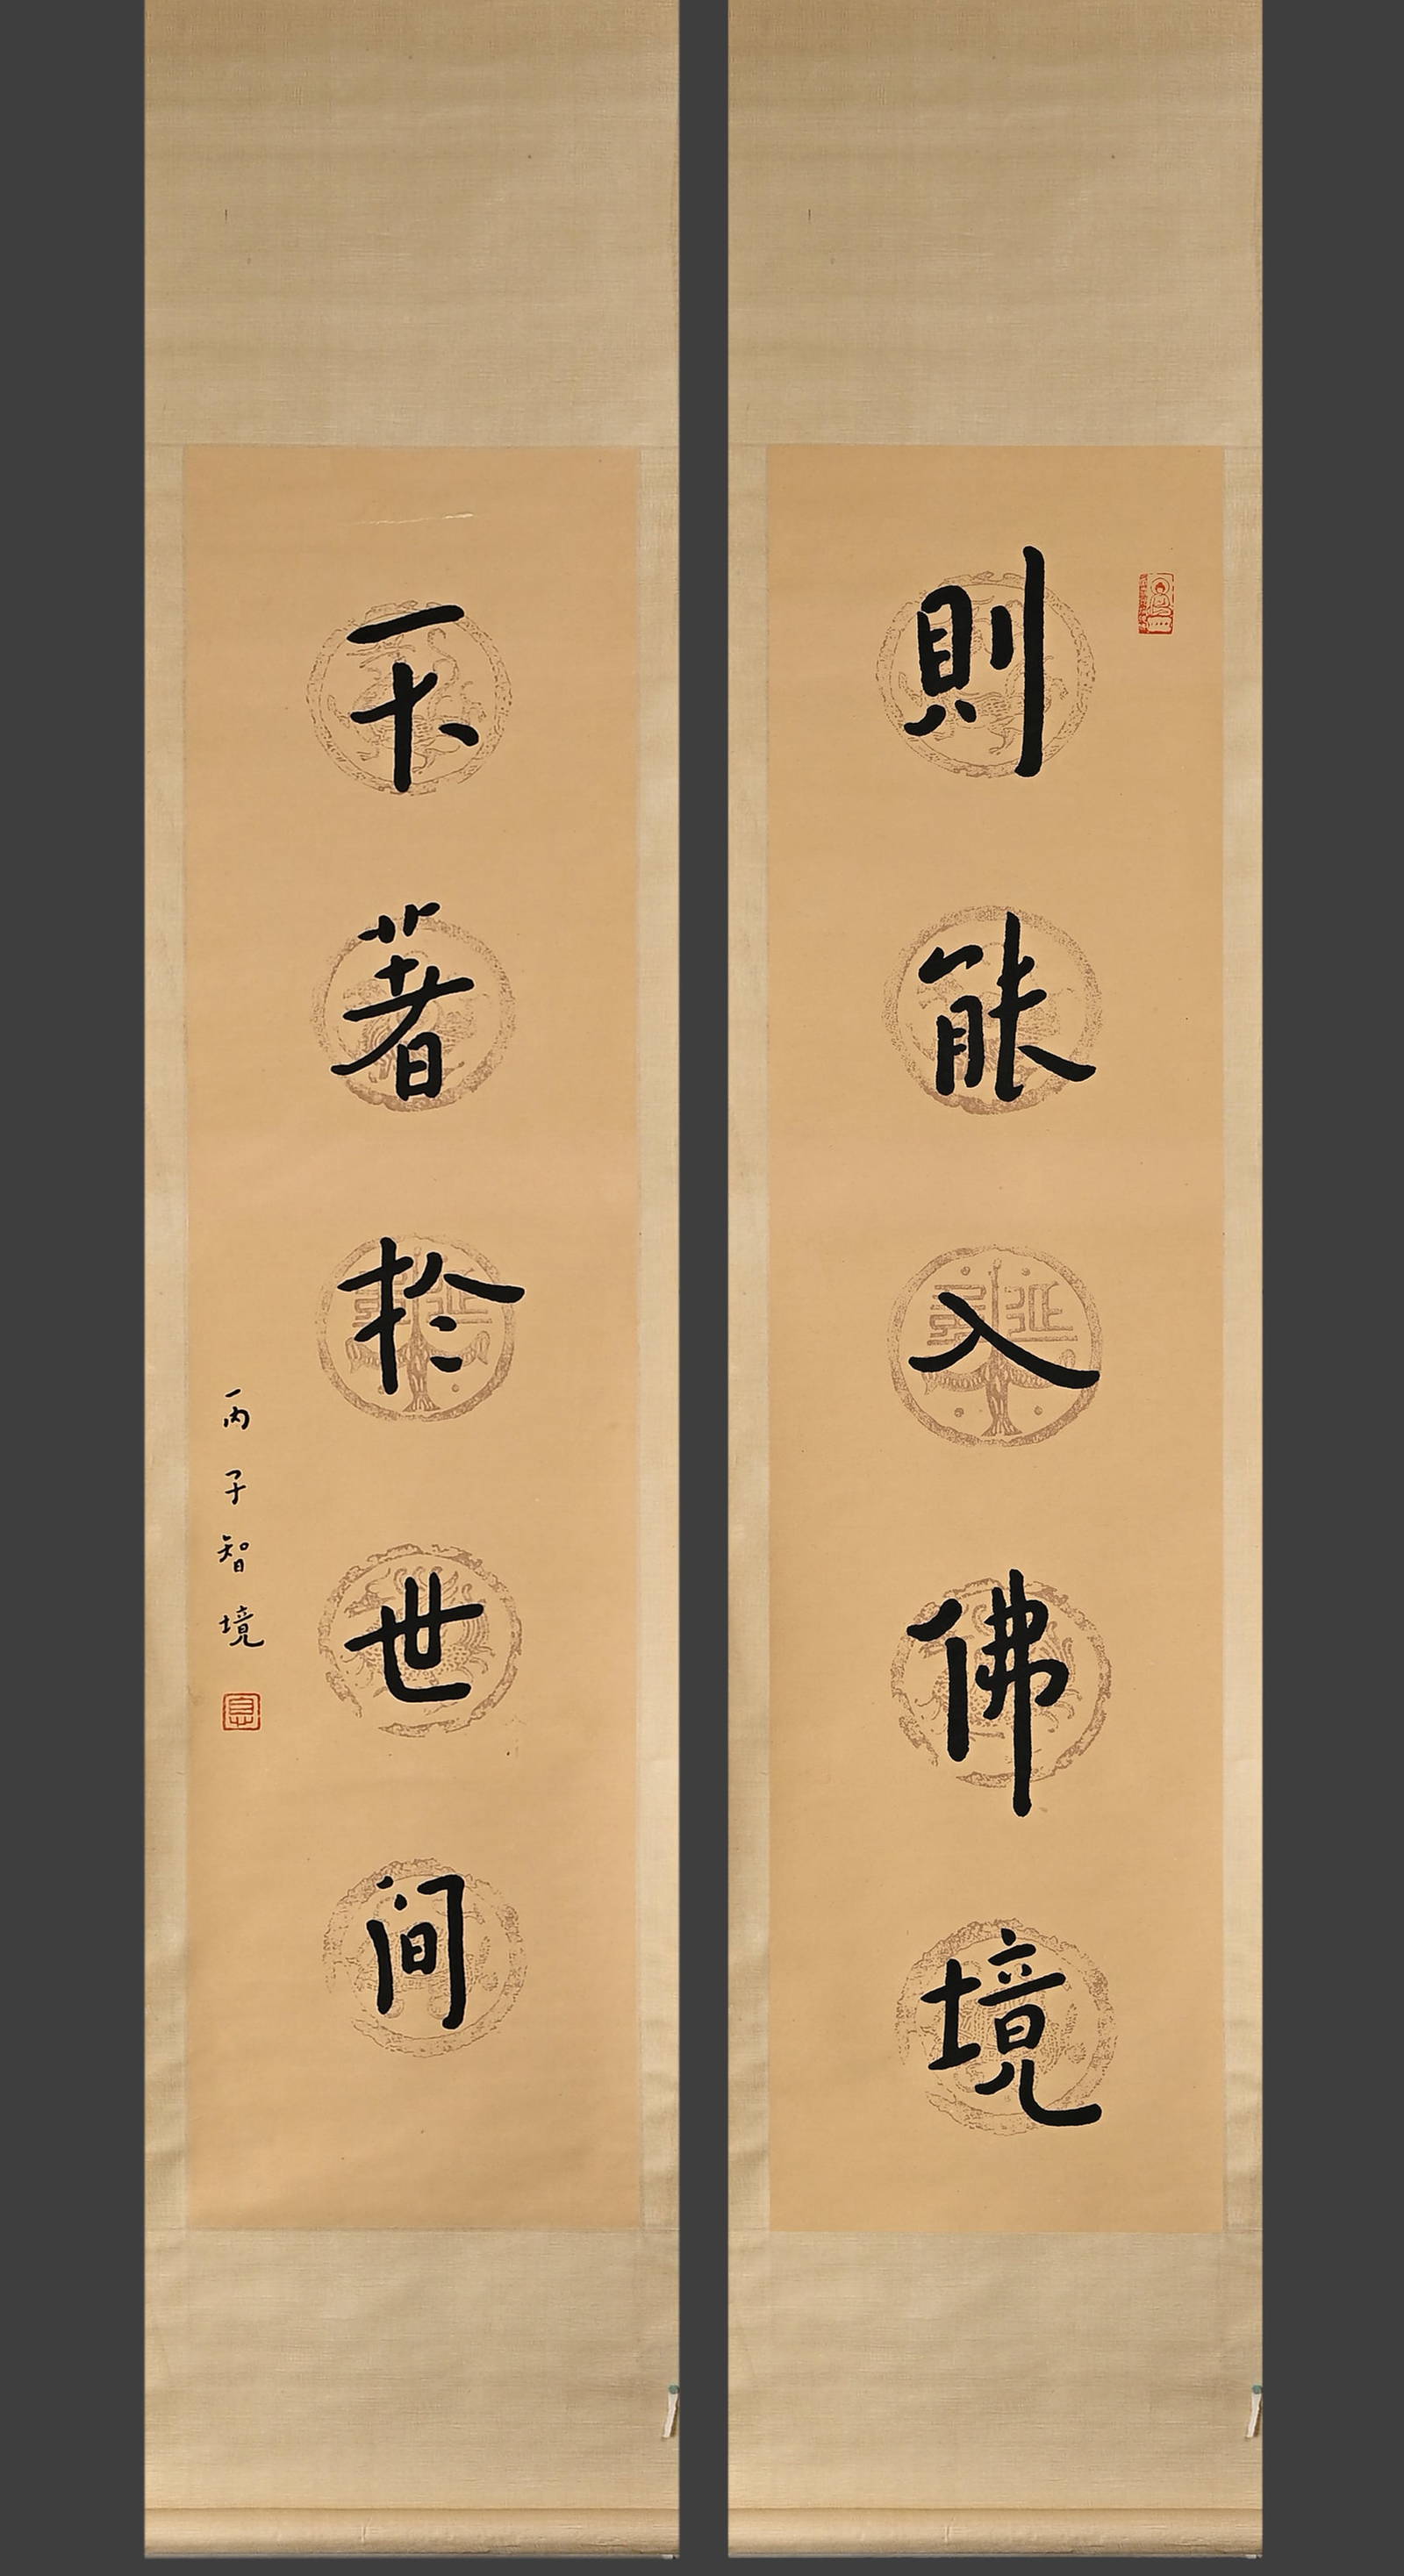 則能入佛境
不著於世間
丙子智境